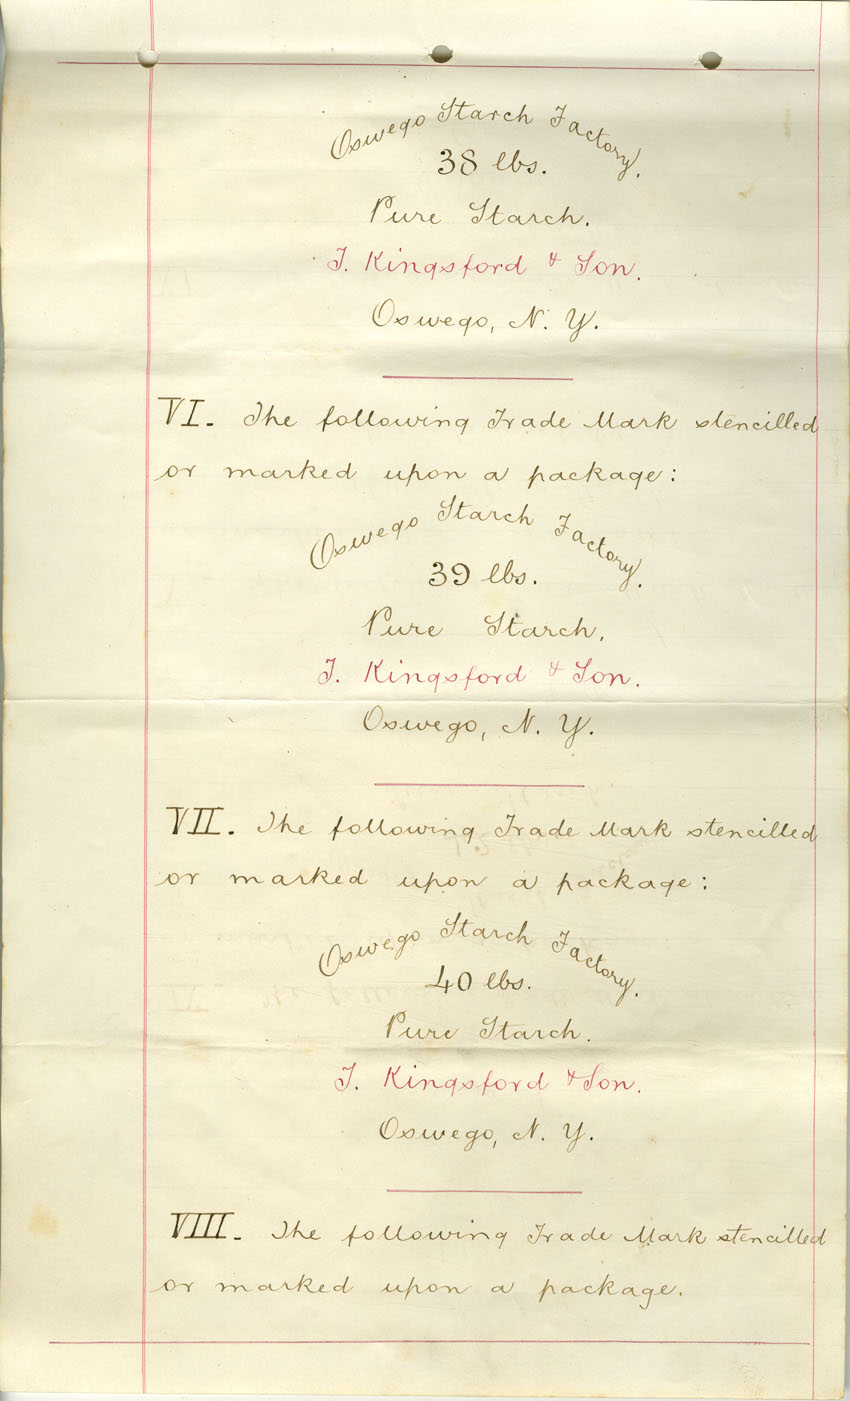 Oswego Starch Factory.
38 lbs.
Pure Starch.
T. Kingsford & Son.
Oswego, N. Y.
VI. The following Trade Mark stencilled
or marked upon a package:
Oswego Starch Factory.
39 lbs.
Pure Starch.
T. Kingsford & Son.
Oswego, N. Y.
VII. The following Trade Mark stencilled
or marked upon a package:
Oswego Starch Factory.
40 lbs.
Pure Starch.
T. Kingsford & Son.
Oswego, N. Y.
VIII. The following Trade Mark stencilled
or marked upon a package.